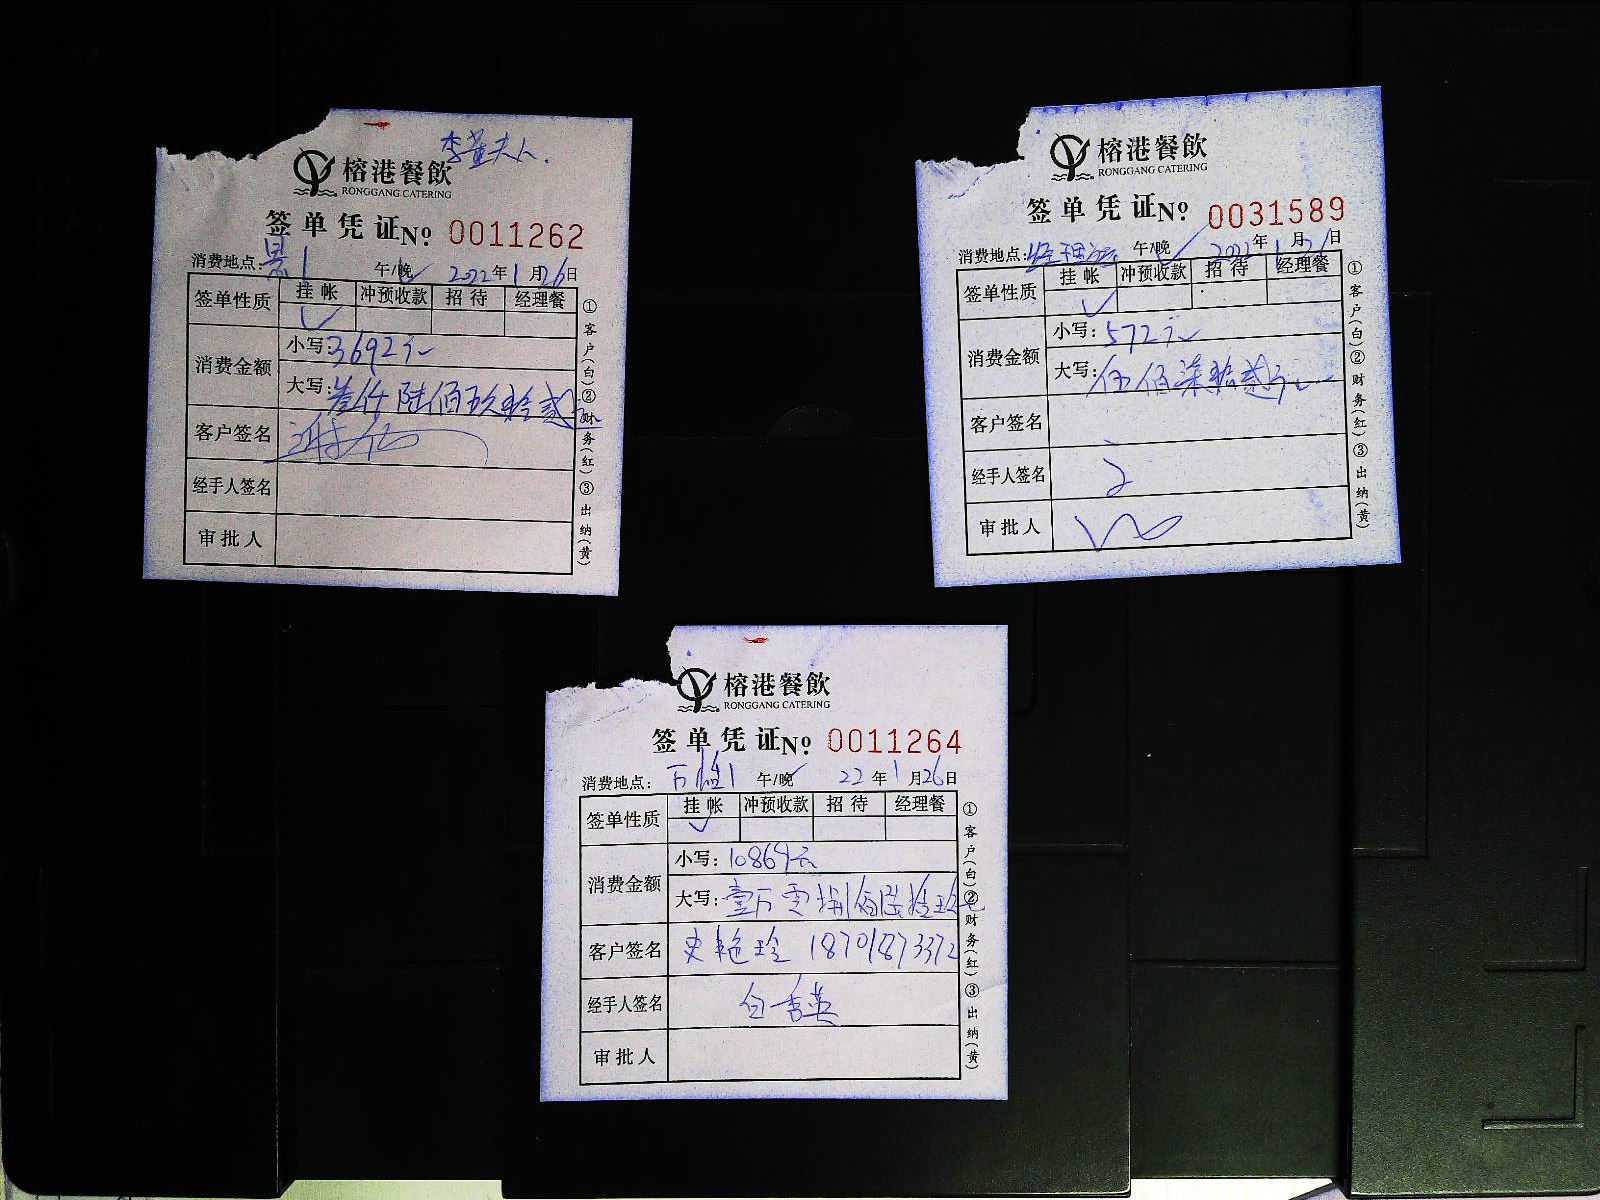 李董夫人.
榕港餐飲
RONGGANG CATERING
签单凭证No 0011262
消费地点: 景1 午/晚 2022年1月26日
签单性质 挂帐 冲预收款 招待 经理餐
消费金额 小写:3692元
大写:叁仟陆佰玖拾贰元
客户签名
经手人签名
审批人
①客户(白)②财务(红)③出纳(黄)
榕港餐飲
RONGGANG CATERING
签单凭证No 0031589
消费地点:经理 午/晚 2022年1月26日
签单性质 挂帐 冲预收款 招待 经理餐
消费金额 小写:572元
大写:伍佰柒拾贰元
客户签名
经手人签名
审批人
①客户(白)②财务(红)③出纳(黄)
榕港餐飲
RONGGANG CATERING
签单凭证No 0011264
消费地点: 午/晚 22年1月26日
签单性质 挂帐 冲预收款 招待 经理餐
消费金额 小写:10869元
大写:壹万零捌佰陆拾玖元
客户签名 史艳玲 18701873372
经手人签名 白秀英
审批人
①客户(白)②财务(红)③出纳(黄)